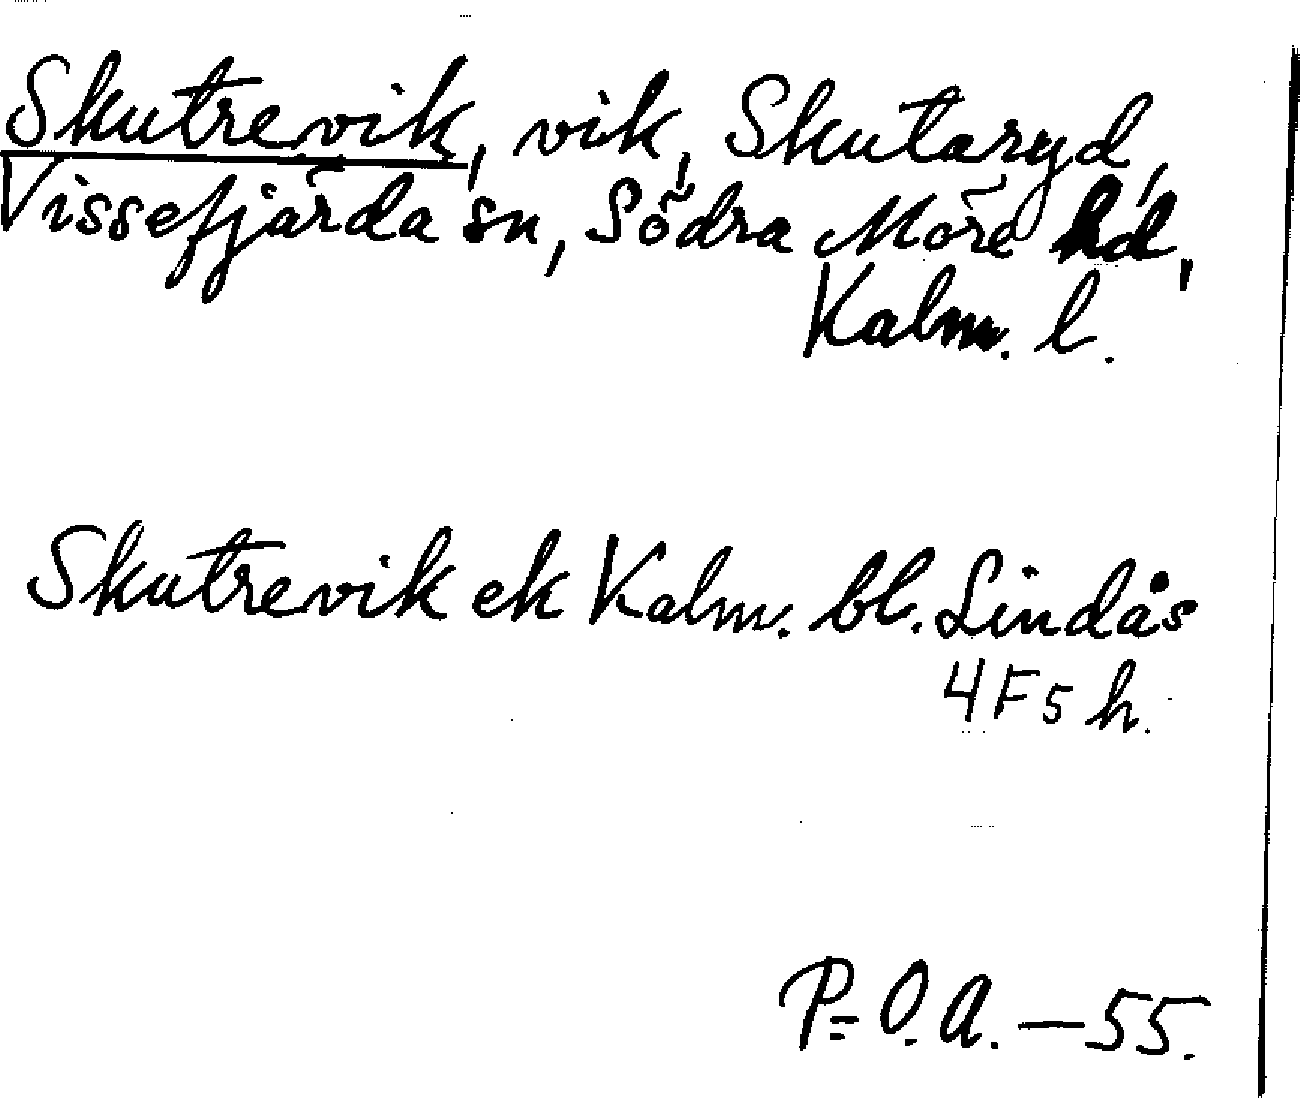 Skutrevik, vik, Skutaryd,
Vissefjärda sn, Södra Möre hd,
Kalm. l.
Skutrevik ek Kalm. bl. Lindås
4 F 5 h.
P-O.A. — 55.